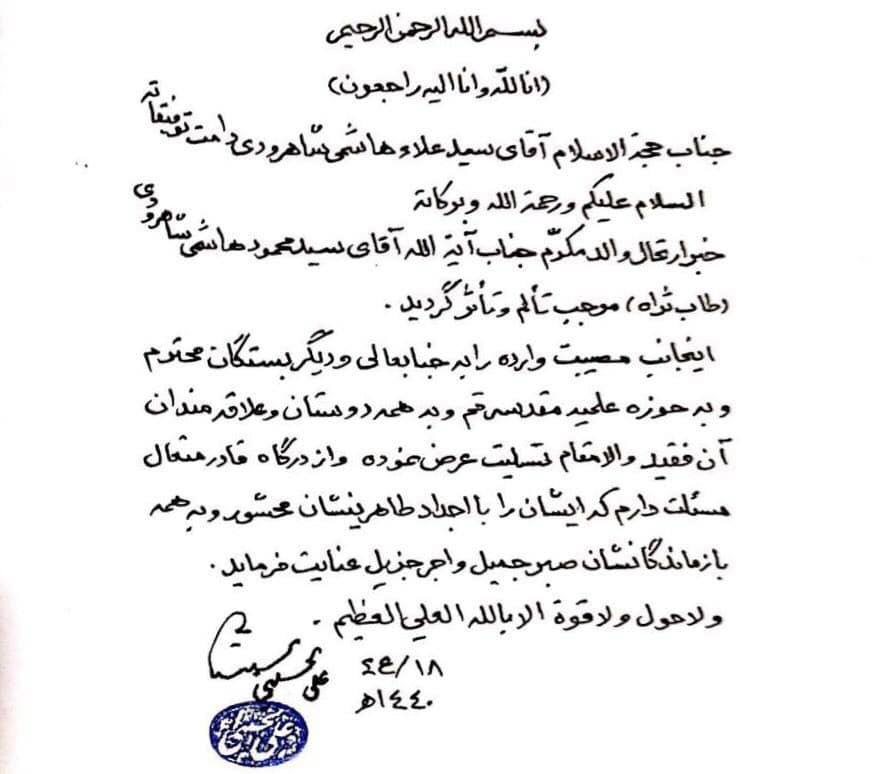 بسم الله الرحمن الرحیم
(انا لله وانا الیه راجعون)
جناب حجة الاسلام آقای سید علاء هاشمی شاهرودی دامت توفیقاته
السلام علیکم ورحمة الله وبرکاته
خبر ارتحال والد مکرّم جناب آیة الله آقای سید محمود هاشمی شاهرودی
(طاب ثراه) موجب تألم وتأثر گردید .
اینجانب مصیبت وارده را به جنابعالی و دیگر بستگان محترم
و به حوزه علمیه مقدسه قم و به همه دوستان و علاقه مندان
آن فقید والامقام تسلیت عرض نموده واز درگاه قادر متعال
مسئلت دارم که ایشان را با اجداد طاهرینشان محشور و به همه
بازماندگانشان صبر جمیل و اجر جزیل عنایت فرماید .
ولا حول ولا قوة الا بالله العلي العظیم .
١٨/ع٢
١٤٤٠هـ
علی الحسینی السیستانی